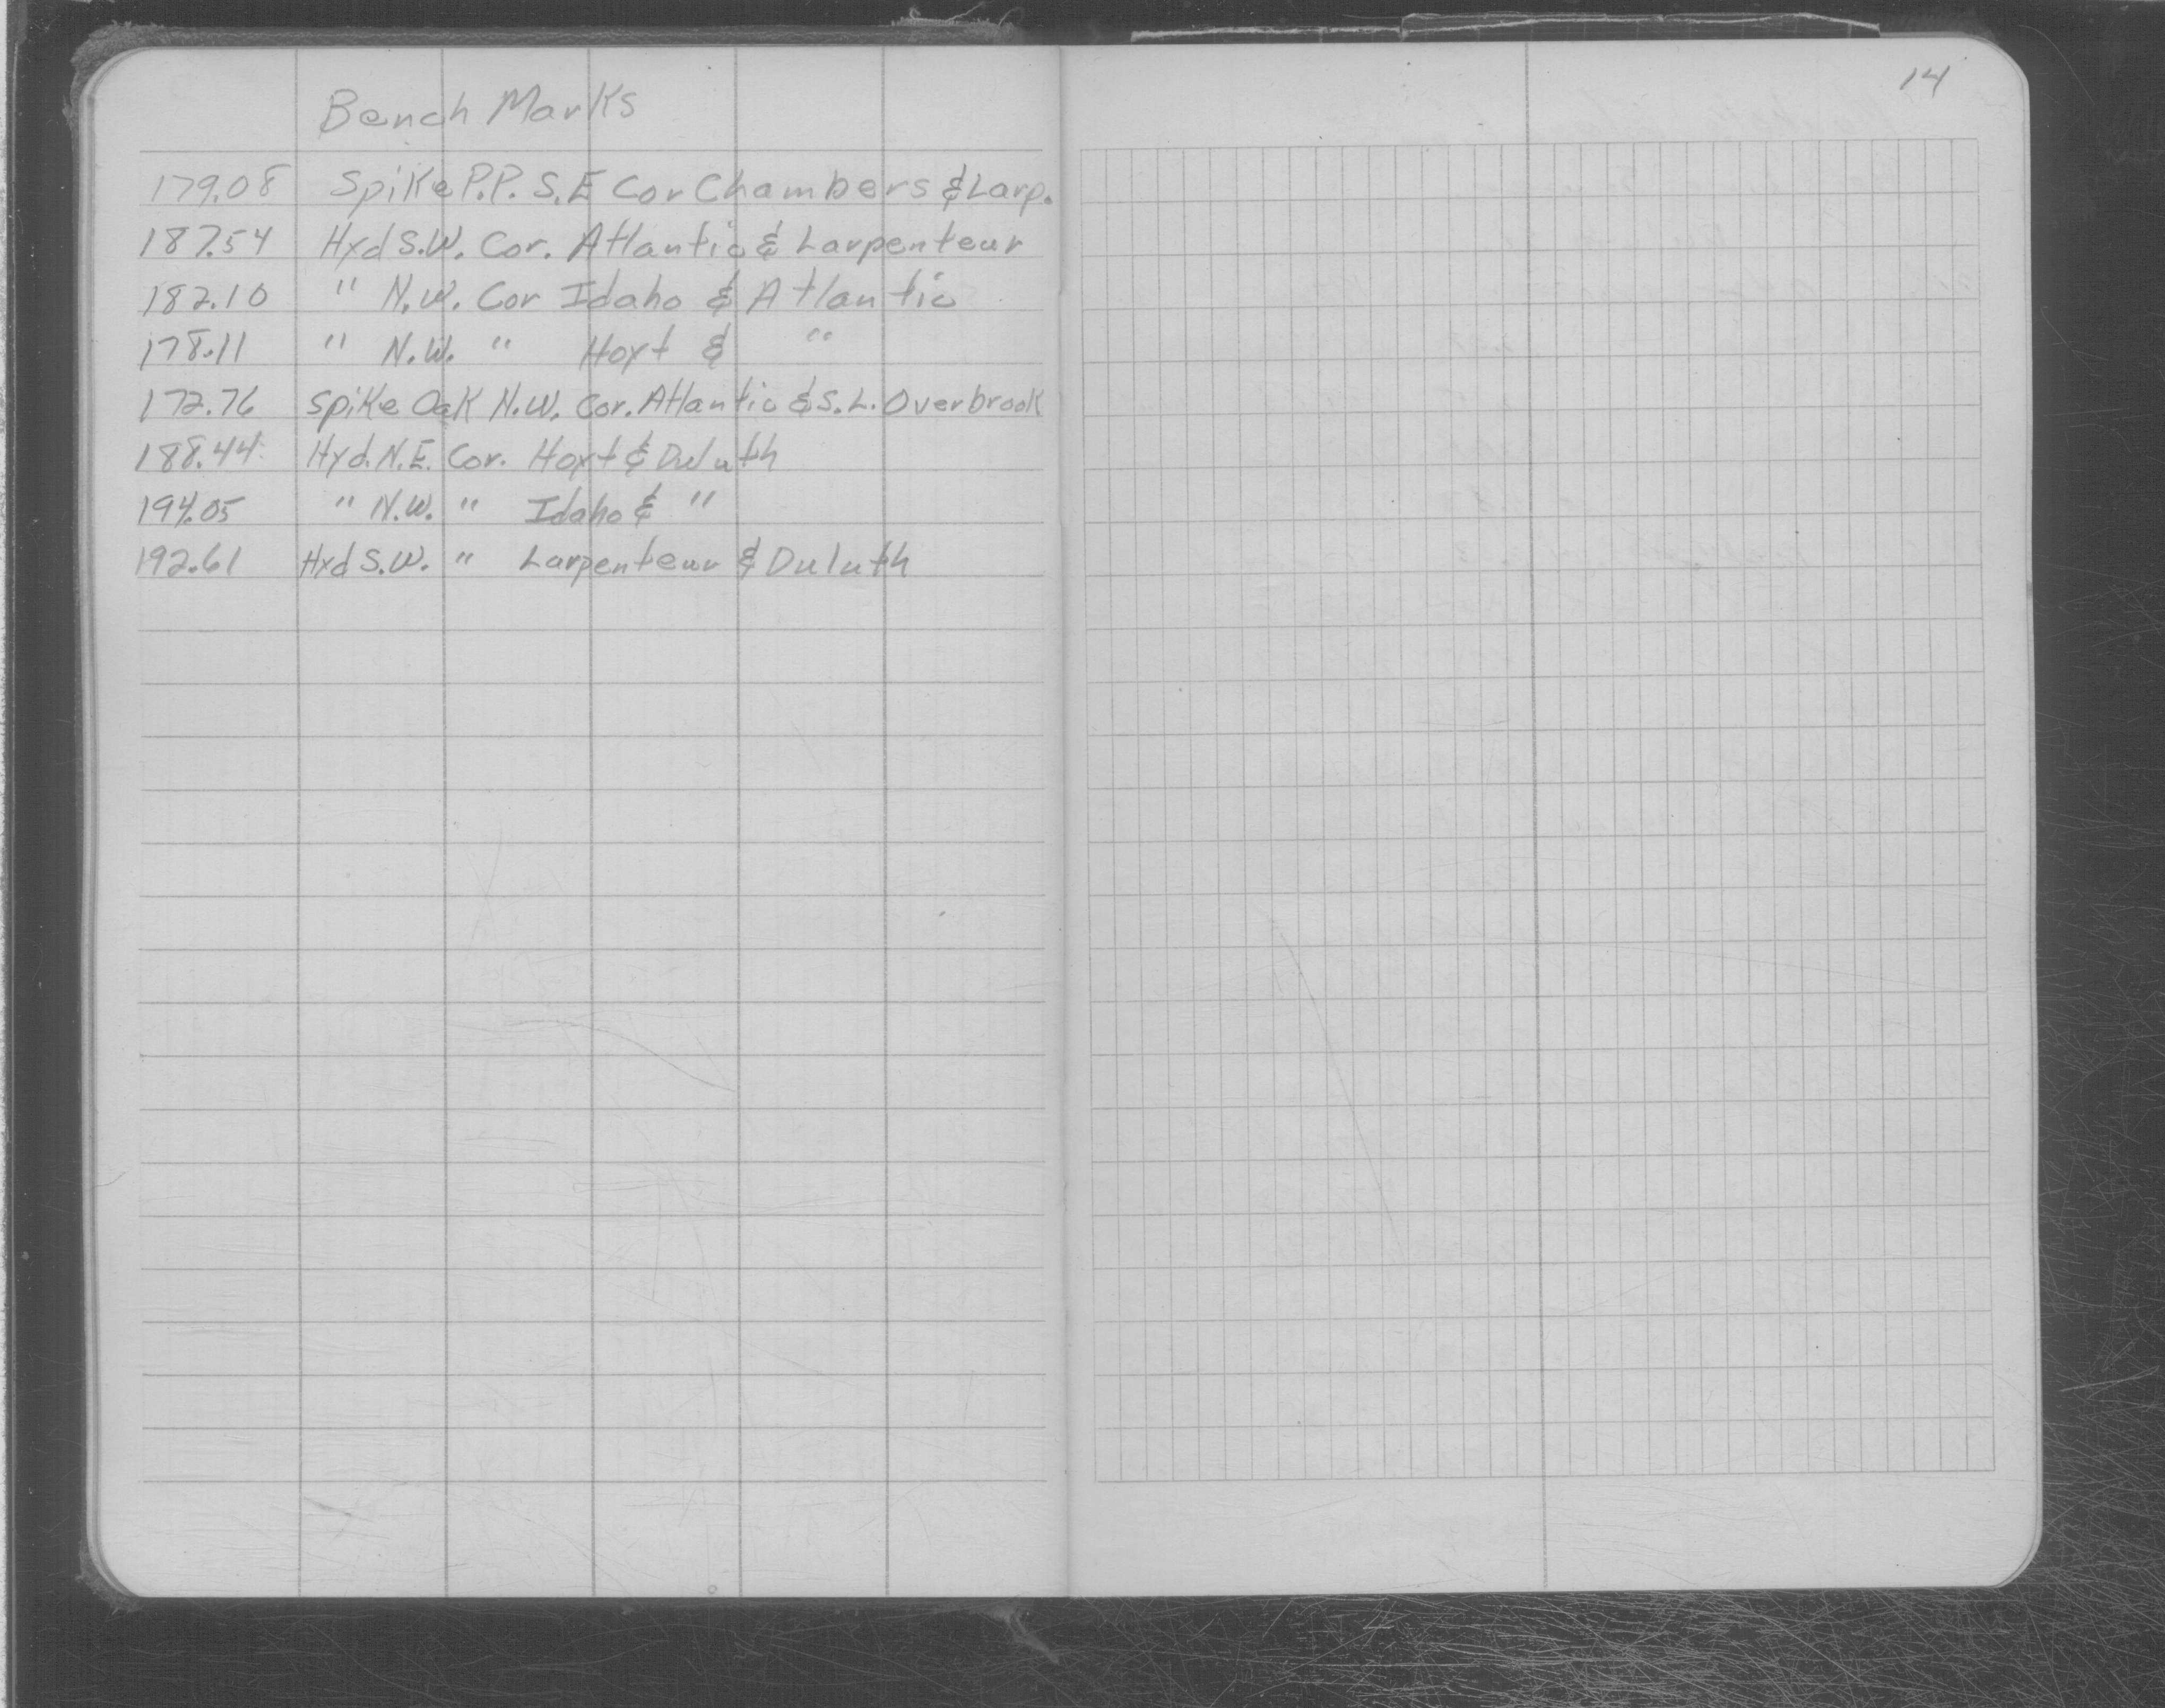 14
Bench Marks
179.08 Spike P.P. S.E Cor Chambers & Larp.
187.54 Hyd S.W. Cor. Atlantic & Larpenteur
182.10 " N.W. Cor Idaho & Atlantic
178.11 " N.W. " Hoyt & "
172.76 Spike Oak N.W. Cor. Atlantic & S.L. Overbrook
188.44 Hyd. N.E. Cor. Hoyt & Duluth
194.05 " N.W. " Idaho & "
192.61 Hyd S.W. " Larpenteur & Duluth